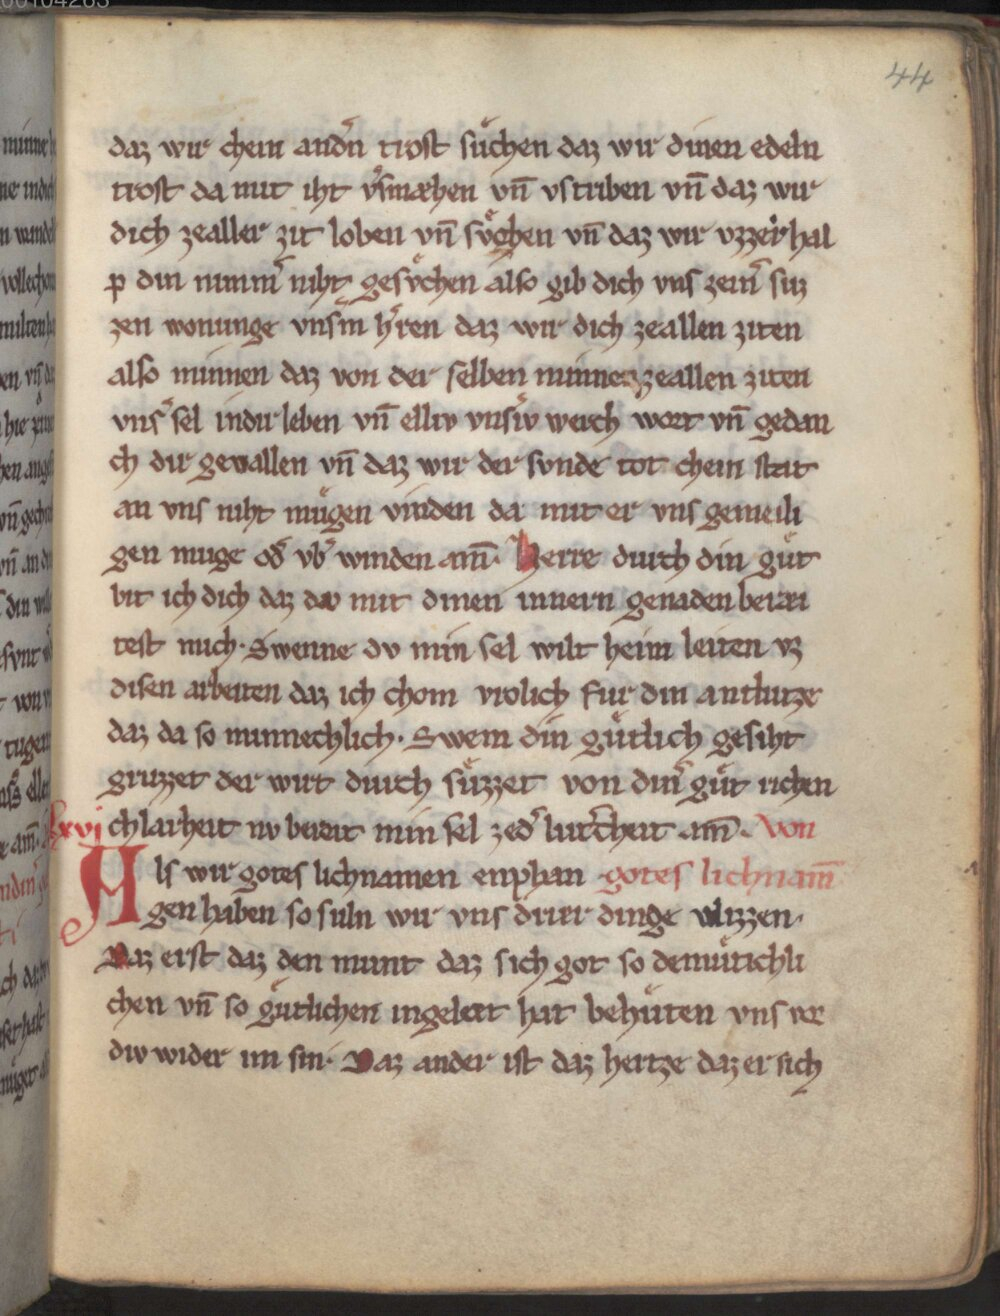 44
daz wir chein andn̄ trost sůchen daz wir dinen edeln
trost da mit iht v̓smæhen vn̄ vstriben vn̄ daz wir
dich zealler zit loben vn̄ sv̊chen vn̄ daz wir vzzerhal
p din nimm̓ niht gesv̊chen also gib dich vns zein̓ siz
zen wonunge vnsm̄ h̓ren daz wir dich zeallen ziten
also minnen daz von der selben minne zeallen ziten
vns̓ sel indir leben vn̄ elliv vnsiv werch wort vn̄ gedan
ch dir gevallen vn̄ daz wir der svnde tot chein stat
an vns niht můgen vinden da mit er vns gemeili
gen muge od̓ vb̓ winden am̄. Herre durch din gůt
bit ich dich daz dv mit dinen innern genaden berai
test mich. Swenne dv min sel wilt heim leiten vz
disen arbeiten daz ich chom vrolich fur din antlutze
daz da so minnechlich. Swem din gůtlich gesiht
gruzzet der wirt durch sůzzet von din̓ gůt richen
lxvi chlarheit nv bereit min sel zed̓ lutercheit am̄. Von
Als wir gotes lichnamen enphan gotes lichnam̄
gen haben so suln wir vns drier dinge vlizzen.
Daz erst daz den munt daz sich got so demůtichli
chen vn̄ so gůtlichen ingeleit hat behůten vns vor
div wider im sin. Daz ander ist daz hertze daz er sich